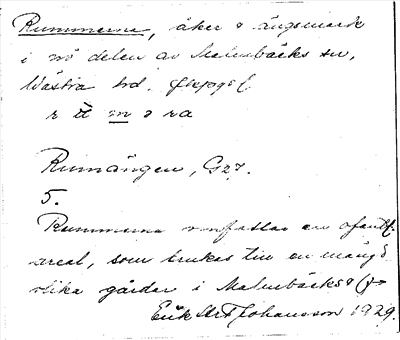 Rummerna, åker & ängsmark
i nö delen av Malmbäcks sn,
Västra hd.
Rumängen, G27.
5.
Rummerna omfattar en ofantl.
areal, som brukas till en mängd
olika gårdar i Malmbäcks
Erik Johansson 1929.